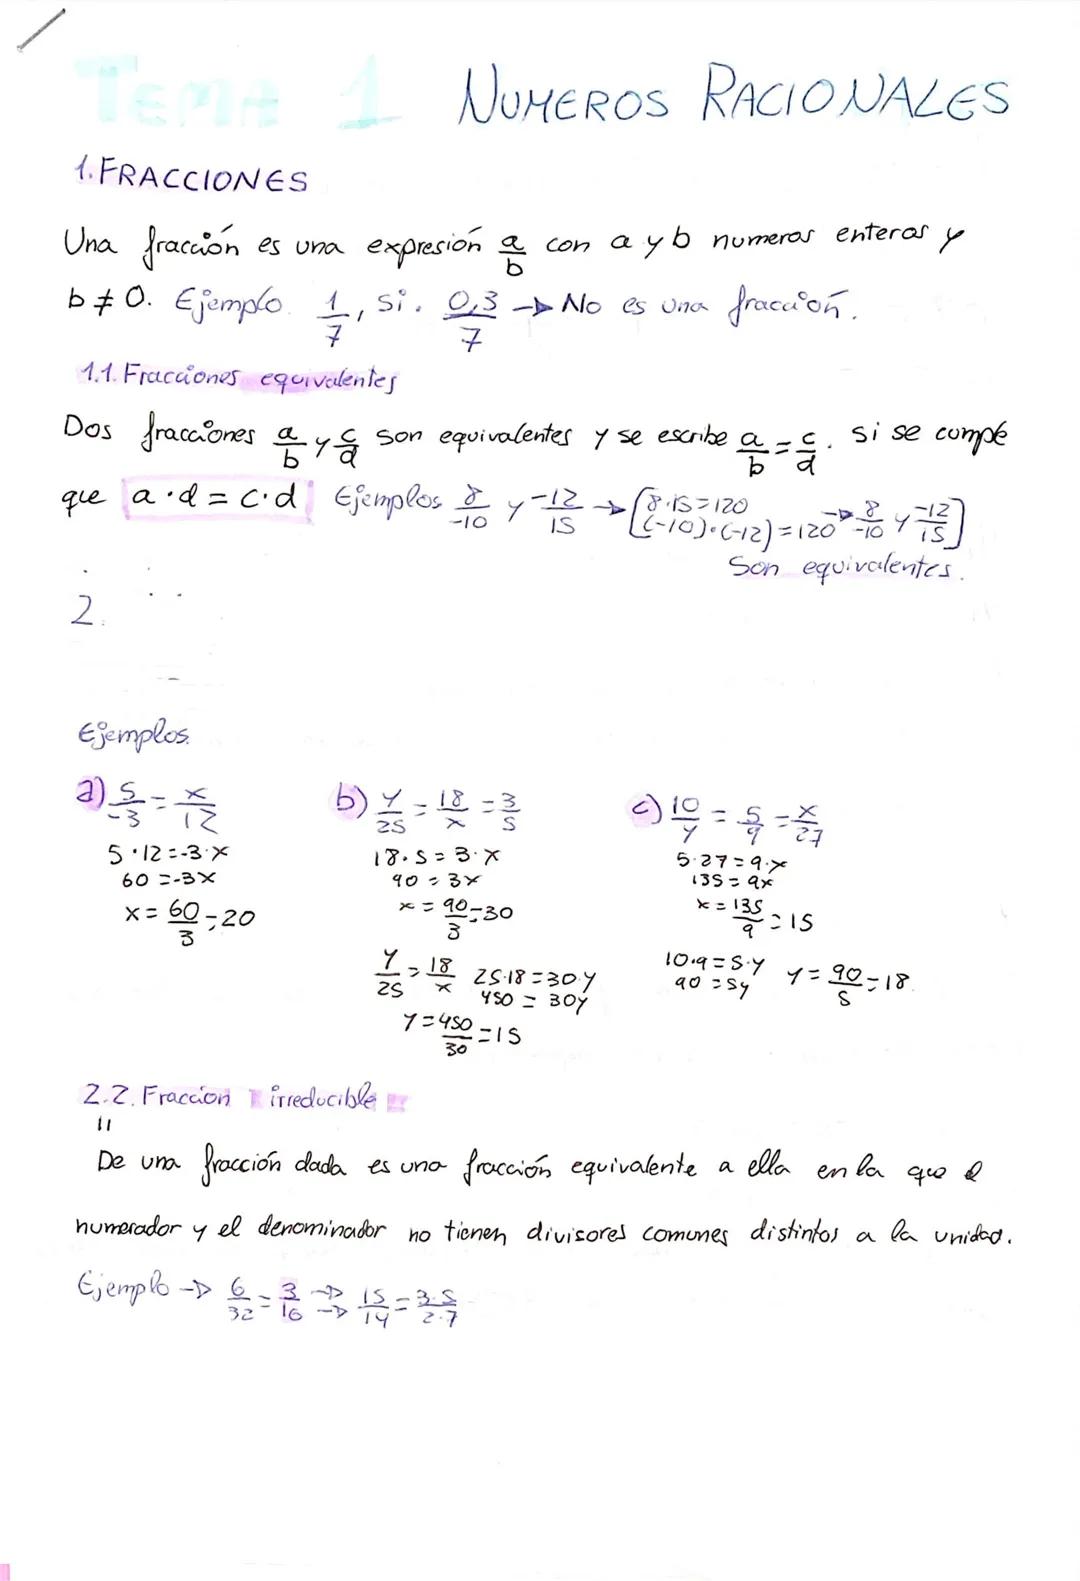 TEMA 1 NUMEROS RACIONALES
1. FRACCIONES
Una fracción es una expresión a/b con a y b numeros enteros y
b ≠ 0. Ejemplo. 1/7, si. 0,3/7 → No es una fracción.
1.1. Fracciones equivalentes
Dos fracciones a/b y c/d son equivalentes y se escribe a/b = c/d. si se cumple
que a·d = c·d Ejemplos 8/-10 y -12/15 → [8·15=120
(-10)·(-12)=120 → 8/-10 y -12/15]
Son equivalentes.
2.
Ejemplos.
a) 5/-3 = x/12
5·12=-3·x
60=-3x
x= 60/3=20
b) y/25 = 18/x = 3/5
18·5=3·x
90=3x
x= 90/3=30
y/25 = 18/x 25·18=30·y
450 = 30y
y=450/30=15
c) 10/y = 5/9 = x/27
5·27=9·x
135=9x
x=135/9=15
10·9=5·y y=90/5=18.
90=5y
2.2. Fraccion irreducible
"
De una fracción dada es una fracción equivalente a ella en la que el
numerador y el denominador no tienen divisores comunes distintos a la unidad.
Ejemplo → 6/32 = 3/16 →→ 15/14 = 3·5/2·7